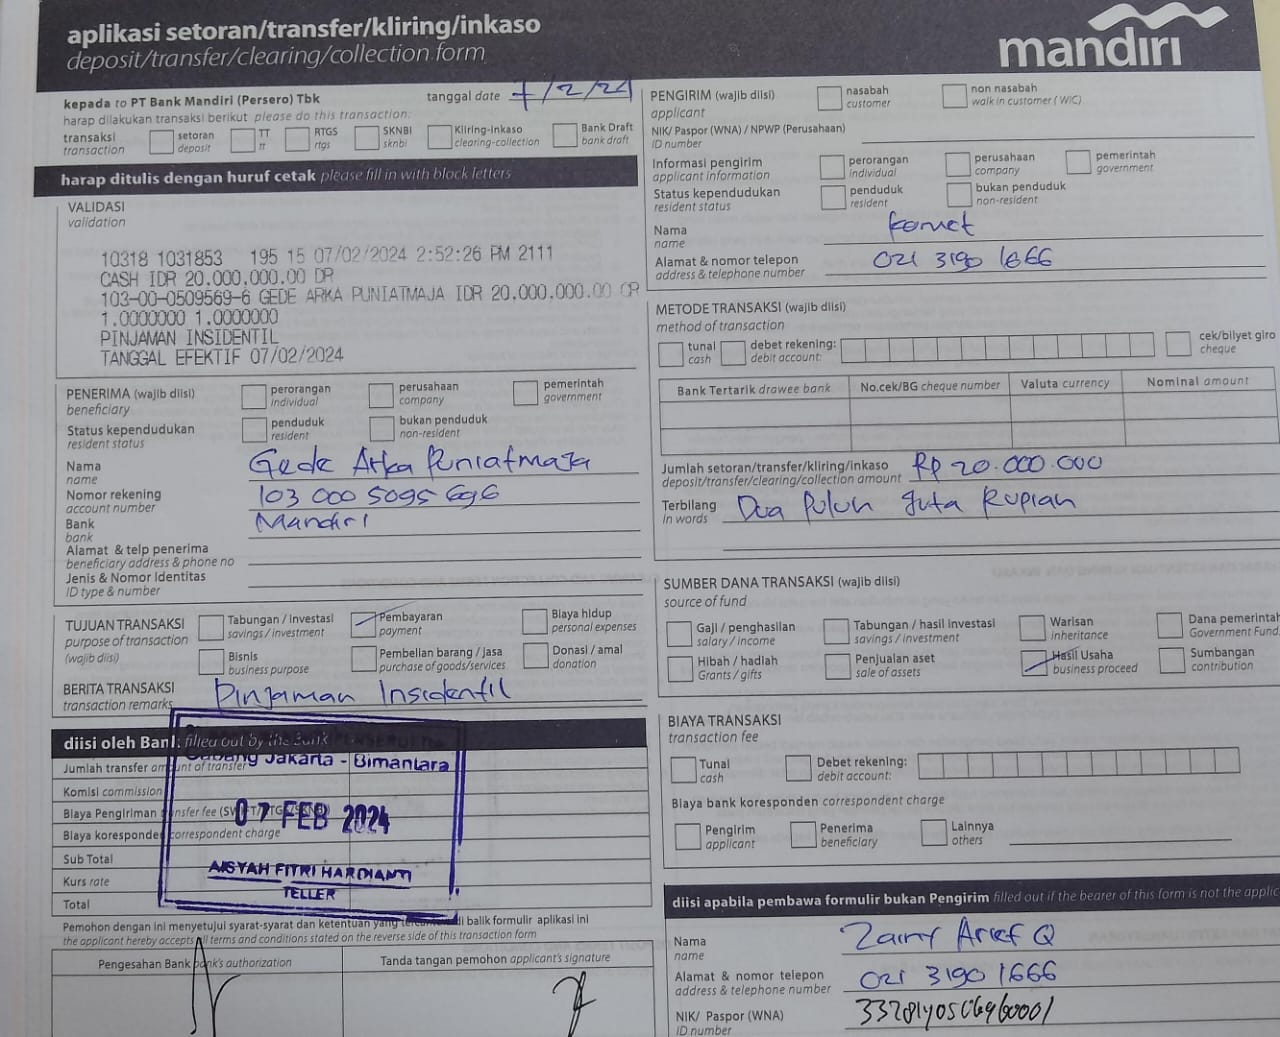 aplikasi setoran/transfer/kliring/inkaso
deposit/transfer/clearing/collection form
mandiri
kepada to PT Bank Mandiri (Persero) Tbk
tanggal date 7/2/24
harap dilakukan transaksi berikut please do this transaction:
transaksi
transaction
setoran
deposit
TT
tt
RTGS
rtgs
SKNBI
sknbi
Kliring-inkaso
clearing-collection
Bank Draft
bank draft
harap ditulis dengan huruf cetak please fill in with block letters
VALIDASI
validation
10318 1031853 195 15 07/02/2024 2:52:26 PM 2111
CASH IDR 20.000.000.00 DR
103-00-0509569-6 GEDE ARKA PUNIATMAJA IDR 20.000.000.00 CR
1.0000000 1.0000000
PINJAMAN INSIDENTIL
TANGGAL EFEKTIF 07/02/2024
PENERIMA (wajib diisi)
beneficiary
perorangan
individual
perusahaan
company
pemerintah
government
Status kependudukan
resident status
penduduk
resident
bukan penduduk
non-resident
Nama
name
Gede Arka Puniatmaja
Nomor rekening
account number
103 000 5095 696
Bank
bank
Mandiri
Alamat & telp penerima
beneficiary address & phone no
Jenis & Nomor Identitas
ID type & number
TUJUAN TRANSAKSI
purpose of transaction
(wajib diisi)
Tabungan / investasi
savings / investment
Pembayaran
payment
Biaya hidup
personal expenses
Bisnis
business purpose
Pembelian barang / jasa
purchase of goods/services
Donasi / amal
donation
BERITA TRANSAKSI
transaction remarks
Pinjaman Insidentil
diisi oleh Bank filled out by the Bank
Jumlah transfer amount of transfer
Komisi commission
Biaya Pengiriman transfer fee
Biaya koresponden correspondent charge
Sub Total
Kurs rate
Total
Cabang Jakarta - Bimantara
07 FEB 2024
AISYAH FITRI HARDIANTI
TELLER
Pemohon dengan ini menyetujui syarat-syarat dan ketentuan yang tercantum di balik formulir aplikasi ini
the applicant hereby accepts all terms and conditions stated on the reverse side of this transaction form
Pengesahan Bank bank's authorization
Tanda tangan pemohon applicant's signature
PENGIRIM (wajib diisi)
applicant
nasabah
customer
non nasabah
walk in customer (WIC)
NIK/ Paspor (WNA) / NPWP (Perusahaan)
ID number
Informasi pengirim
applicant information
perorangan
individual
perusahaan
company
pemerintah
government
Status kependudukan
resident status
penduduk
resident
bukan penduduk
non-resident
Nama
name
Alamat & nomor telepon
address & telephone number
021 3190 1666
METODE TRANSAKSI (wajib diisi)
method of transaction
tunai
cash
debet rekening:
debit account:
cek/bilyet giro
cheque
Bank Tertarik drawee bank
No.cek/BG cheque number
Valuta currency
Nominal amount
Jumlah setoran/transfer/kliring/inkaso
deposit/transfer/clearing/collection amount
Rp 20.000.000
Terbilang
in words
Dua Puluh Juta Rupiah
SUMBER DANA TRANSAKSI (wajib diisi)
source of fund
Gaji / penghasilan
salary / income
Tabungan / hasil investasi
savings / investment
Warisan
inheritance
Dana pemerintah
Government Fund
Hibah / hadiah
Grants / gifts
Penjualan aset
sale of assets
Hasil Usaha
business proceed
Sumbangan
contribution
BIAYA TRANSAKSI
transaction fee
Tunai
cash
Debet rekening:
debit account:
Biaya bank koresponden correspondent charge
Pengirim
applicant
Penerima
beneficiary
Lainnya
others
diisi apabila pembawa formulir bukan Pengirim filled out if the bearer of this form is not the applic
Nama
name
Arief Q
Alamat & nomor telepon
address & telephone number
021 3190 1666
NIK/ Paspor (WNA)
ID number